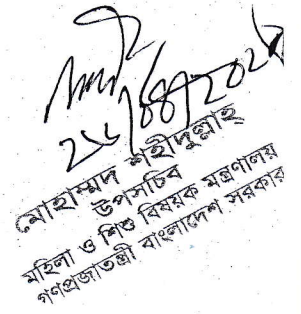 মোহাম্মদ শহীদুল্লাহ
উপসচিব
মহিলা ও শিশু বিষয়ক মন্ত্রণালয়
গণপ্রজাতন্ত্রী বাংলাদেশ সরকার